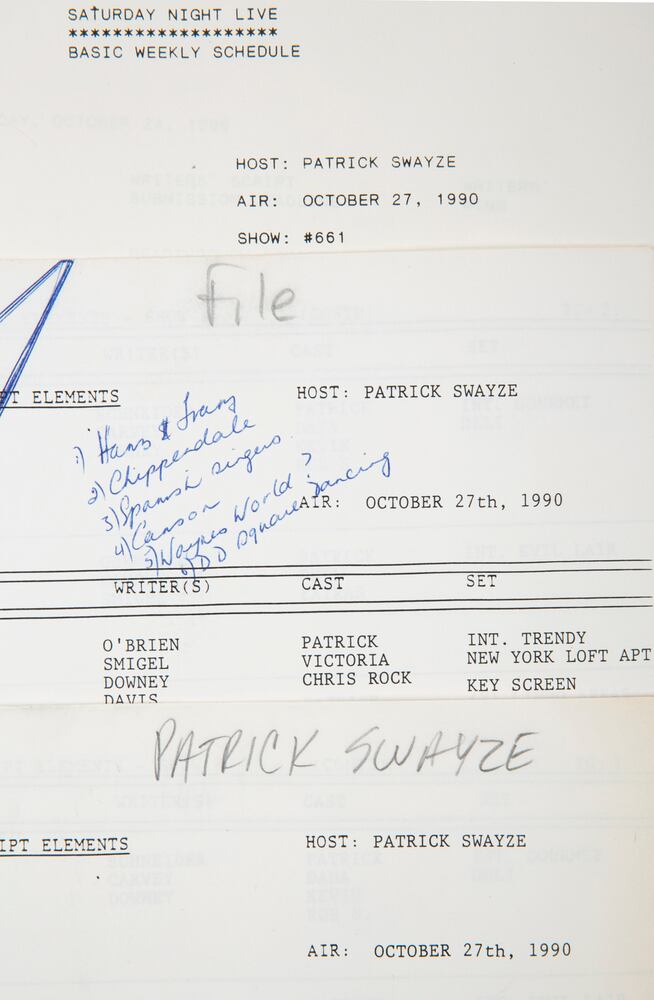 SATURDAY NIGHT LIVE
*******************
BASIC WEEKLY SCHEDULE
HOST: PATRICK SWAYZE
AIR: OCTOBER 27, 1990
SHOW: #661
File
PT ELEMENTS
HOST: PATRICK SWAYZE
1) Hans & Franz
2) Chippendale
3) Spanish singers
4) Carson
5) Waynes World?
6) DD square dancing
AIR: OCTOBER 27th, 1990
WRITER(S) CAST SET
O'BRIEN PATRICK INT. TRENDY
SMIGEL VICTORIA NEW YORK LOFT APT
DOWNEY CHRIS ROCK KEY SCREEN
DAVIS
PATRICK SWAYZE
IPT ELEMENTS
HOST: PATRICK SWAYZE
AIR: OCTOBER 27th, 1990